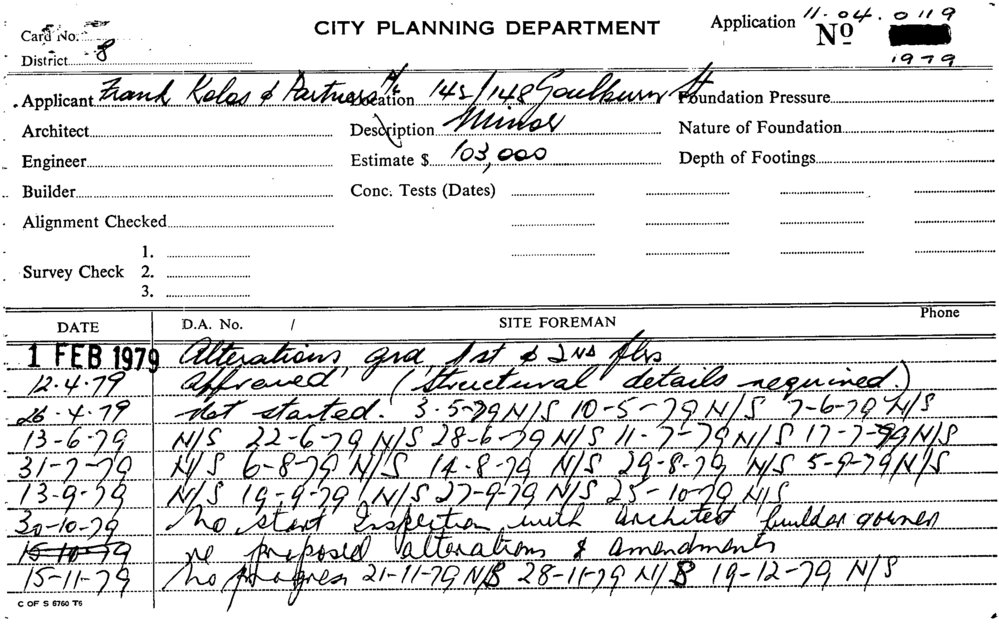 CITY PLANNING DEPARTMENT
Application No 11.04.0119
1979
Card No.
District 8
Applicant Frank Kolos & Partners P/L Location 145/148 Goulburn St Foundation Pressure
Architect Description Minor Nature of Foundation
Engineer Estimate $ 103,000 Depth of Footings
Builder Conc. Tests (Dates)
Alignment Checked
Survey Check 1.
2.
3.
DATE D.A. No. / SITE FOREMAN Phone
1 FEB 1979 Alterations grd, 1st & 2ND flrs
12.4.79 Approved (Structural details required.)
26.4.79 Not started. 3-5-79 N/S 10-5-79 N/S 7-6-79 N/S
13-6-79 N/S 22-6-79 N/S 28-6-79 N/S 11-7-79 N/S 17-7-79 N/S
31-7-79 N/S 6-8-79 N/S 14-8-79 N/S 29-8-79 N/S 5-9-79 N/S
13-9-79 N/S 19-9-79 N/S 27-9-79 N/S 25-10-79 N/S
30-10-79 No start Inspection with architect builder & owner
15-10-79 re proposed alterations & amendments
15-11-79 No progress 21-11-79 N/S 28-11-79 N/S 19-12-79 N/S
C OF S 6760 T6